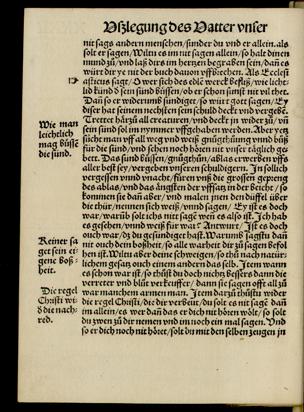 Vßlegung des Vatter vnser
nit sags andern menschen / sunder du vnd er allein. als
solt er sagen / Wiltu es im nit sagen allein / so halt dinen
mund zů / vnd laß dirs im hertzen begraben sein / dañ es
würt dir ye nit der buch dauon vffbrechen. Als Ecclesi
asticus sagt / O wer sich des edlē werck befliß / wie
lich künd d sein sünd büssen / ob er schon sunst nit vil thet.
Dañ so er widerumb sündiget / so würt gott sagen / Ey
diser hat seinem nechsten sein schuld deckt vnd vergebē.
Trettet härzů all creaturen / vnd deckt jn wider zů / vñ
sein sünd sol im nymmer vffgehaben werden. Aber yetz
sůcht man vff all weg vnd weiß gnůgthůung vnd bůß
für die sünd / vnd sehen noch hören nit vnser täglich ge
bett. Das sünd büssen / gnůgthůn / ablas erwerben vffs
aller best sey / vergeben vnsern schuldigern. In sollich
vergessen vnd vnacht / füren vnß die grossen gepreng
des ablas / vnd das ängsten der vffsatz in der beicht / so
kommen sie dañ aber / vnd malen jnen den düffel über
die thür / nennen sich weiß / vnd sagen / Ey ist es doch
war / warūb solt ichs nitt sagē wen es also ist. Ich hab
es gesehen / vnnd weiß für war? Antwurt / Jst es doch
ouch war / dz du gesündet hast. Warumb sagstu dañ
nit ouch dein boßheit / so alle warheit dir zů sagen befol
hen ist. Wiltu aber deine schweigen / so thů nach natür
lichem gesatz ouch einem andern das selb. Item wann
es schon war ist / so thůst du doch nichtz bessers dann die
verreter vnd blůt verkeuffer / dann sie sagen offt all zů
war manchem armen man. Item darzů thůstu wider
die regel Christi / die dir verbüt / du solt es nit sagē dañ
im allein / es wer dañ das er dich nit hören wölt / so solt
du zwen zů der nemen vnd im noch ein mal sagen. Vnd
so er dich noch nit höret / solt du mit den selben zeugen jn
Wie man
leichtlich
mag büssē
die sünd.
Keiner sa
get sein ei
gene boß-
heit.
Die regel
Christi wi
d die nach
red.